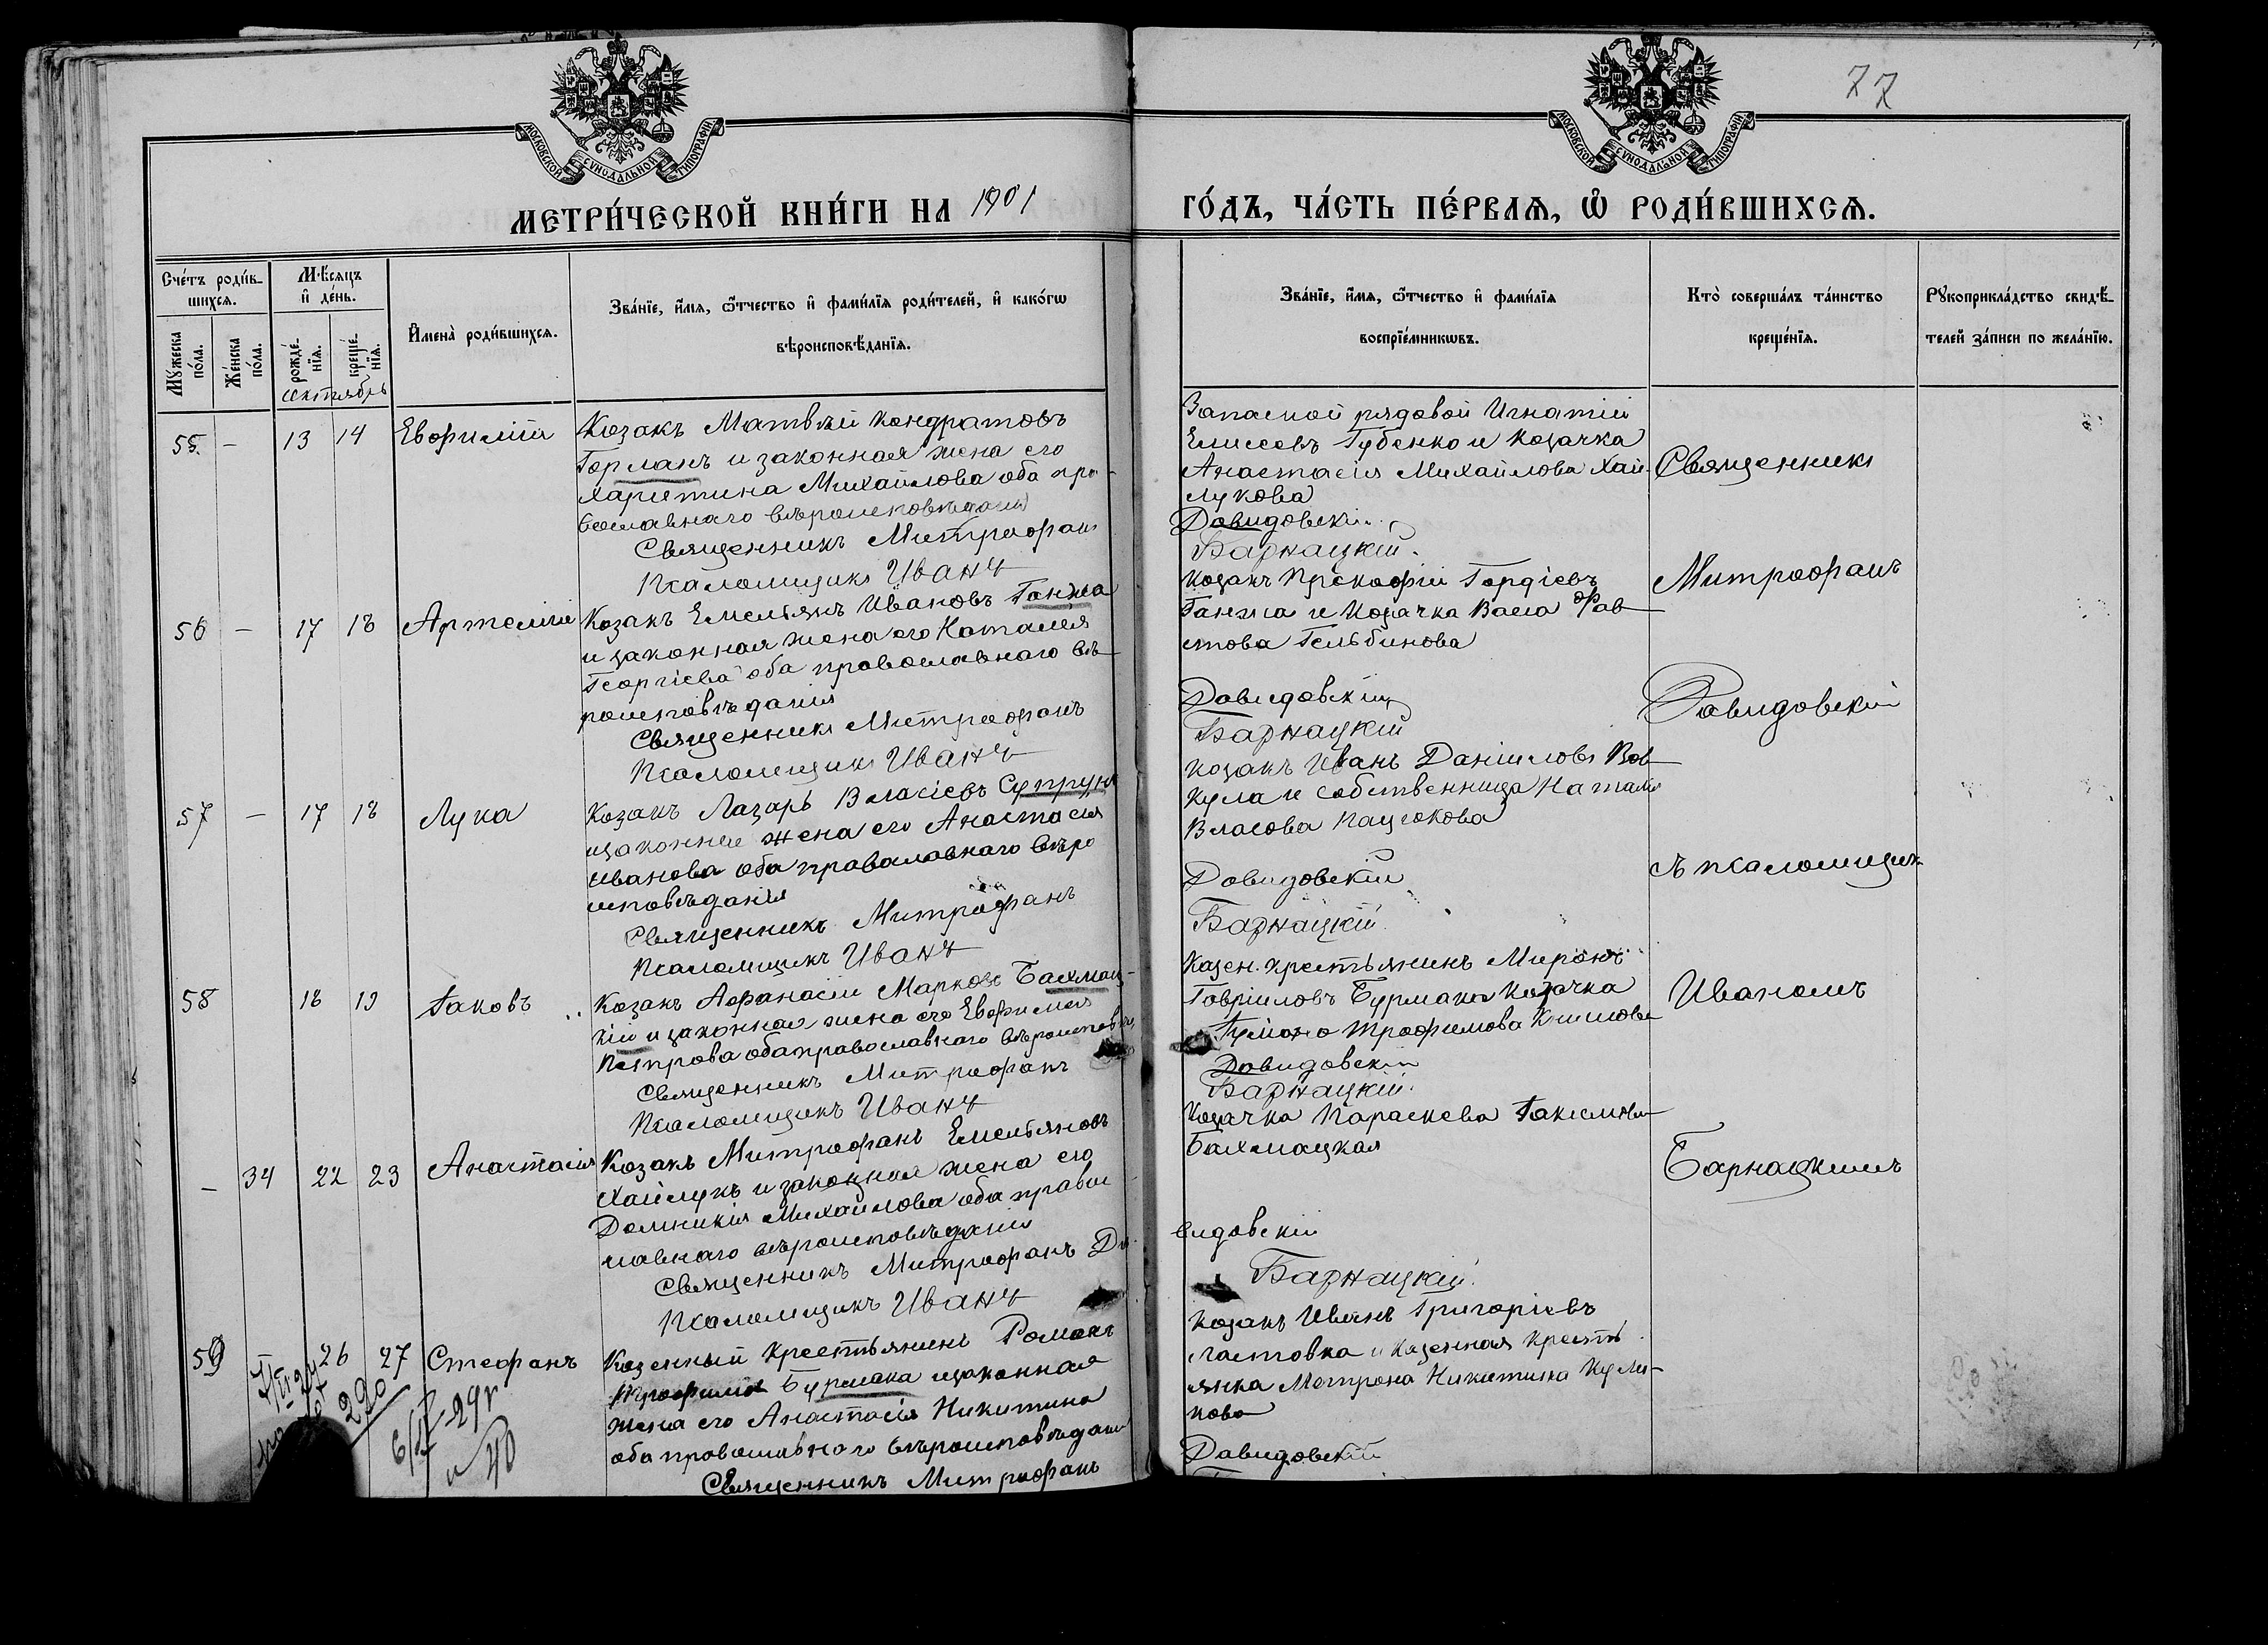 77
МОСКОВСКОЙ СѴНОДАЛЬНОЙ ТИПОГРАФІИ
МОСКОВСКОЙ СѴНОДАЛЬНОЙ ТИПОГРАФІИ
МЕТРИ́ЧЕСКОЙ КНИ́ГИ НА 1901
ГО́ДЪ, ЧА́СТЬ ПЕ́РВАѦ, Ѡ РОДИ́ВШИХСѦ.
Сче́тъ роди́в-
шихся.
Мѣ́сяцъ
и҆ де́нь.
Мꙋ́жеска по́ла.
Же́нска по́ла.
рожде́-
нїя.
креще́-
нїя.
И҆мена̀ роди́вшихся.
Зва́нїе, и҆́мя, ѻ҆́тчество и҆ фами́лїя роди́телей, и҆ како́гѡ
вѣроисповѣ́данїя.
Зва́нїе, и҆́мя, ѻ҆́тчество и҆ фами́лїя
воспрїе́мникѡвъ.
Кто̀ соверша́лъ та́инство
креще́нїя.
Рꙋкоприкла́дство свидѣ́-
телей за́писи по жела́нїю.
сентябрь
55. – 13 14 Евфимій
Козакъ Матвѣй Кондратовъ
Горланъ и законная жена его
Харитина Михайлова оба пра-
вославнаго вѣроисповѣданія
Священникъ Митрофанъ
Псаломщикъ Иванъ
Запасной рядовой Игнатій
Елисеевъ Губенко и козачка
Анастасія Михайлова Хай-
лукова
Давидовскій
Барнацкій.
Священникъ
56 – 17 18 Артемій
Козакъ Емельянъ Ивановъ Ганжа
и законная жена его Наталія
Георгіева оба православнаго вѣ-
роисповѣданія
Священникъ Митрофанъ
Псаломщикъ Иванъ
Козакъ Прокофій Гордіевъ
Ганжа и козачка Васса Фав-
стова Гельбинова
Давидовскій
Барнацкій
Митрофанъ
Давидовскій
57 – 17 18 Лука
Козакъ Лазарь Власіевъ Супрунъ
и законная жена его Анастасія
Иванова оба православнаго вѣро
исповѣданія
Священникъ Митрофанъ
Псаломщикъ Иванъ
Козакъ Иванъ Даніиловъ Вов-
кула и собственница Наталія
Власова Пацюкова
Давидовскій
Барнацкій
съ псаломщик.
58 18 19 Іаковъ
Козакъ Афанасій Марковъ Бахмац-
кій и законная жена его Евфимія
Петрова оба православнаго вѣроисповѣд.
Священникъ Митрофанъ
Псаломщикъ Иванъ
Казен. крестьянинъ Миронъ
Гавріиловъ Бурмака козачка
Трофимова
Давидовскій
Барнацкій.
Иваномъ
– 34 22 23 Анастасія
Козакъ Митрофанъ Емельяновъ
Хайлукъ и законная жена его
Домникія Михайлова оба право
славнаго вѣроисповѣданія
Священникъ Митрофанъ Да-
Псаломщикъ Иванъ
Козачка Параскева Іакимова
Бахмацкая
видовскій
Барнацкій.
Барнацкимъ
59 26 27 Стефанъ
Казенный крестьянинъ Романъ
Трофимовъ Бурмака и законная
жена его Анастасія Никитина
оба православнаго вѣроисповѣданія
Священникъ Митрофанъ
Козакъ Иванъ Григоріевъ
Ластовка и казенная кресть
янка Матрона Никитина Кули-
кова
Давидовскій
290